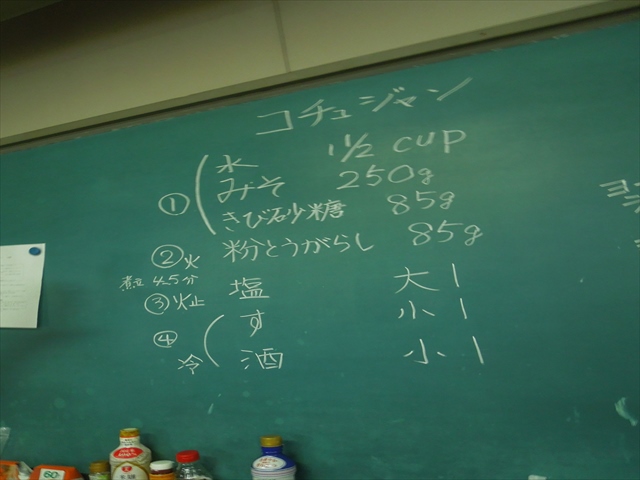 コチュジャン
① 水 1 1/2 cup
みそ 250g
きび砂糖 85g
②火 粉とうがらし 85g
煮立 4.5分
③火止 塩 大1
④ す 小1
冷 酒 小1
ヨ
60